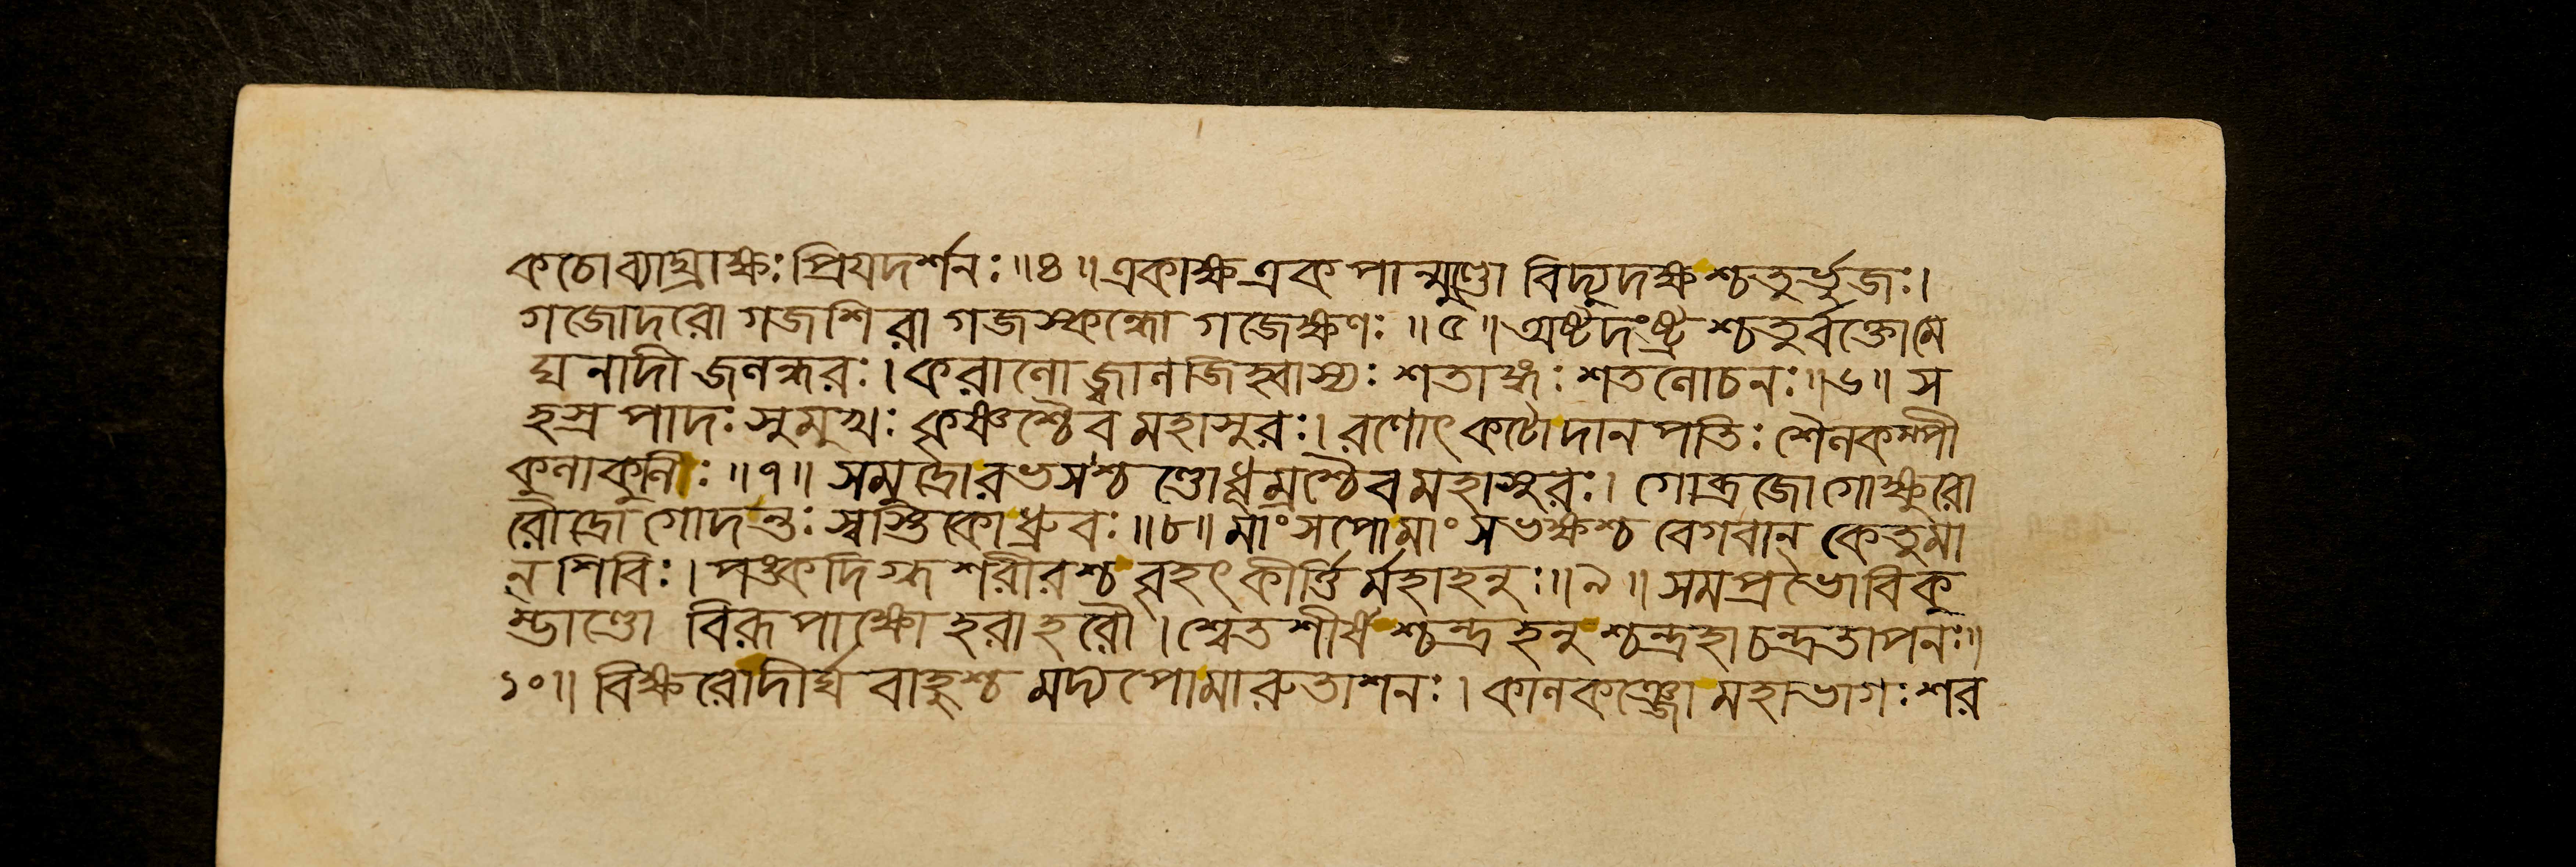 কচো ব্যাঘ্রাক্ষঃ প্রিযদর্শনঃ ॥ ৪ ॥ একাক্ষ এক পান্মুণ্ডো বিদ্যুদক্ষ শ্চতুর্ভুজঃ ।
গজোদরো গজশিরা গজস্কন্ধো গজেক্ষণঃ ॥ ৫ ॥ অষ্টদংষ্ট্র শ্চতুর্বক্তো মে
ঘ নাদী জনন্ধরঃ । করানো জ্বানজিহ্বাস্যঃ শতাক্ষঃ শতনোচনঃ ॥ ৬ ॥ স
হস্র পাদঃ সুমুখঃ কৃষ্ণশ্চৈব মহাসুরঃ । রণোৎকটো দানপতিঃ শৈনকম্পী
কুনাকুনীঃ ॥ ৭ ॥ সমুদ্রো রভসশ্চণ্ডো ধূম্রশ্চৈব মহাসুরঃ । গোব্রজো গোক্ষুরো
রৌদ্রো গোদন্তঃ স্বস্তিকো ধ্রুবঃ ॥ ৮ ॥ মাংসপো মাংসভক্ষশ্চ বেগবান্ কেতুমা
ন্ শিবিঃ । পঙ্কদিগ্ধ শরীরশ্চ বৃহৎকীর্ত্তি র্মহাহনুঃ ॥ ৯ ॥ সমপ্রভো বিকু
ম্ভাণ্ডো বিরূপাক্ষো হরাহরৌ । শ্বেতশীর্ষ শ্চন্দ্রহনু শ্চন্দ্রহা চন্দ্রতাপনঃ ॥
১০ ॥ বিক্ষরো দীর্ঘবাহুশ্চ মদ্যপো মারুতাশনঃ । কানকঞ্জো মহাভাগঃ শর